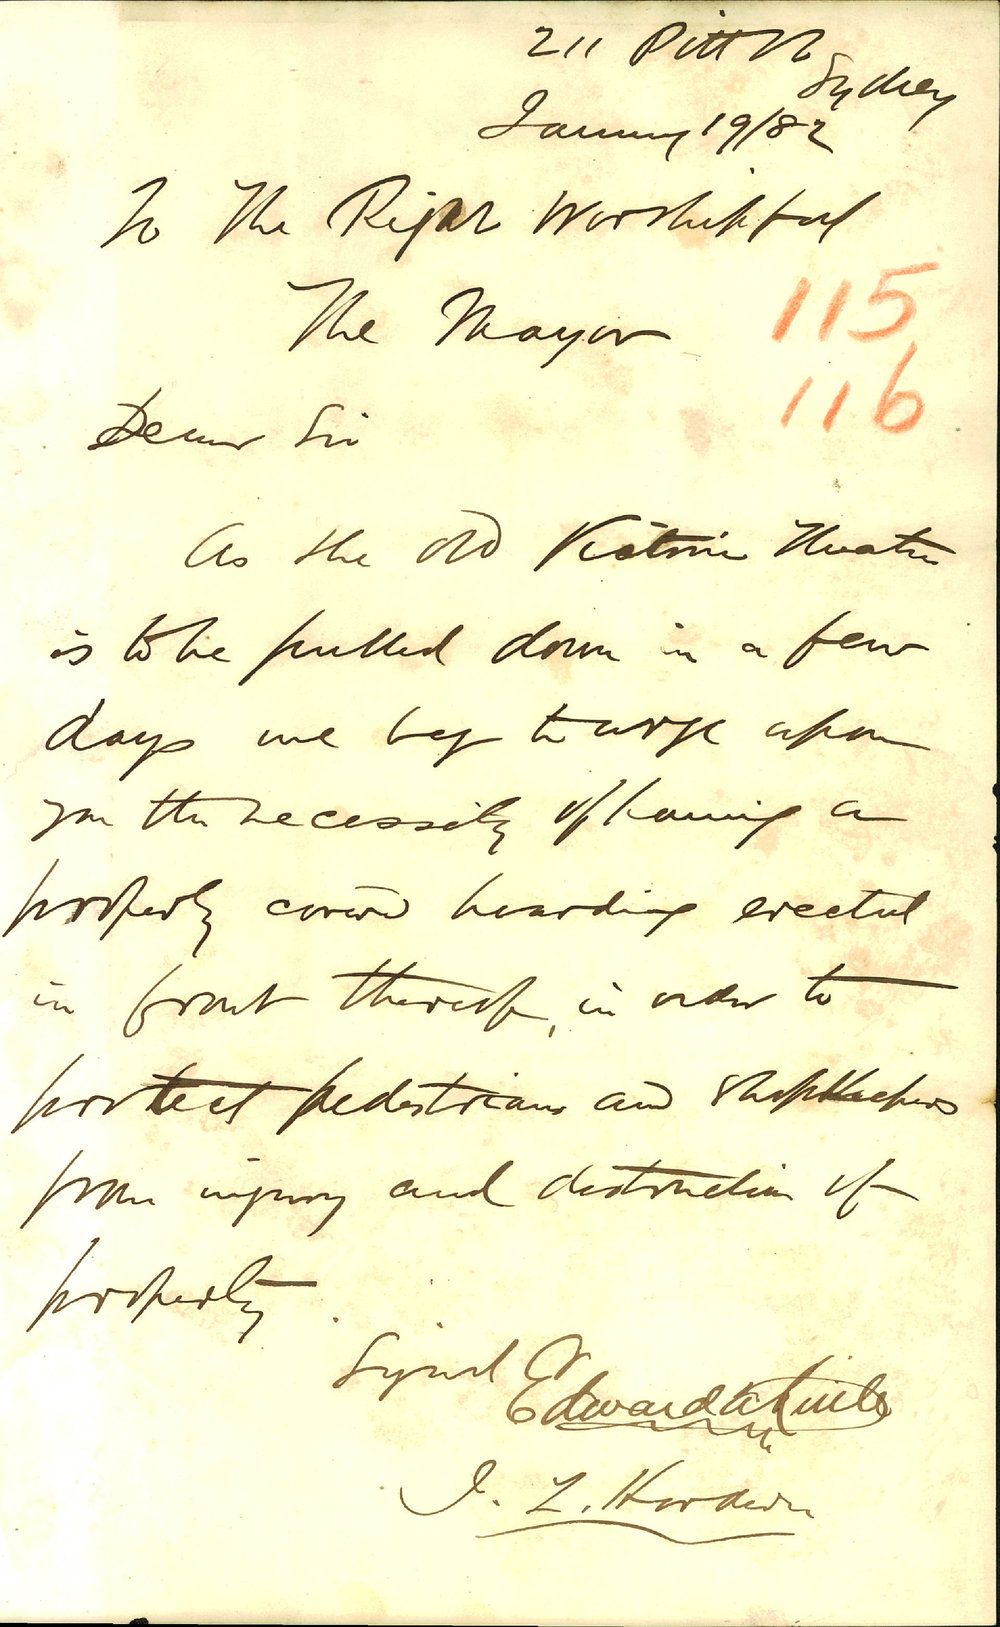 211 Pitt St
Sydney
January 19/82
To The Right Worshipful
The Mayor
115
116
Dear Sir
As the old Victoria Theatre
is to be pulled down in a few
days we beg to urge upon
you the necessity of having a
properly covered hoarding erected
in front thereof, in order to
protect pedestrians and Shopkeepers
from injury and destruction of
property.
Signed Edward
J. L. Hordern